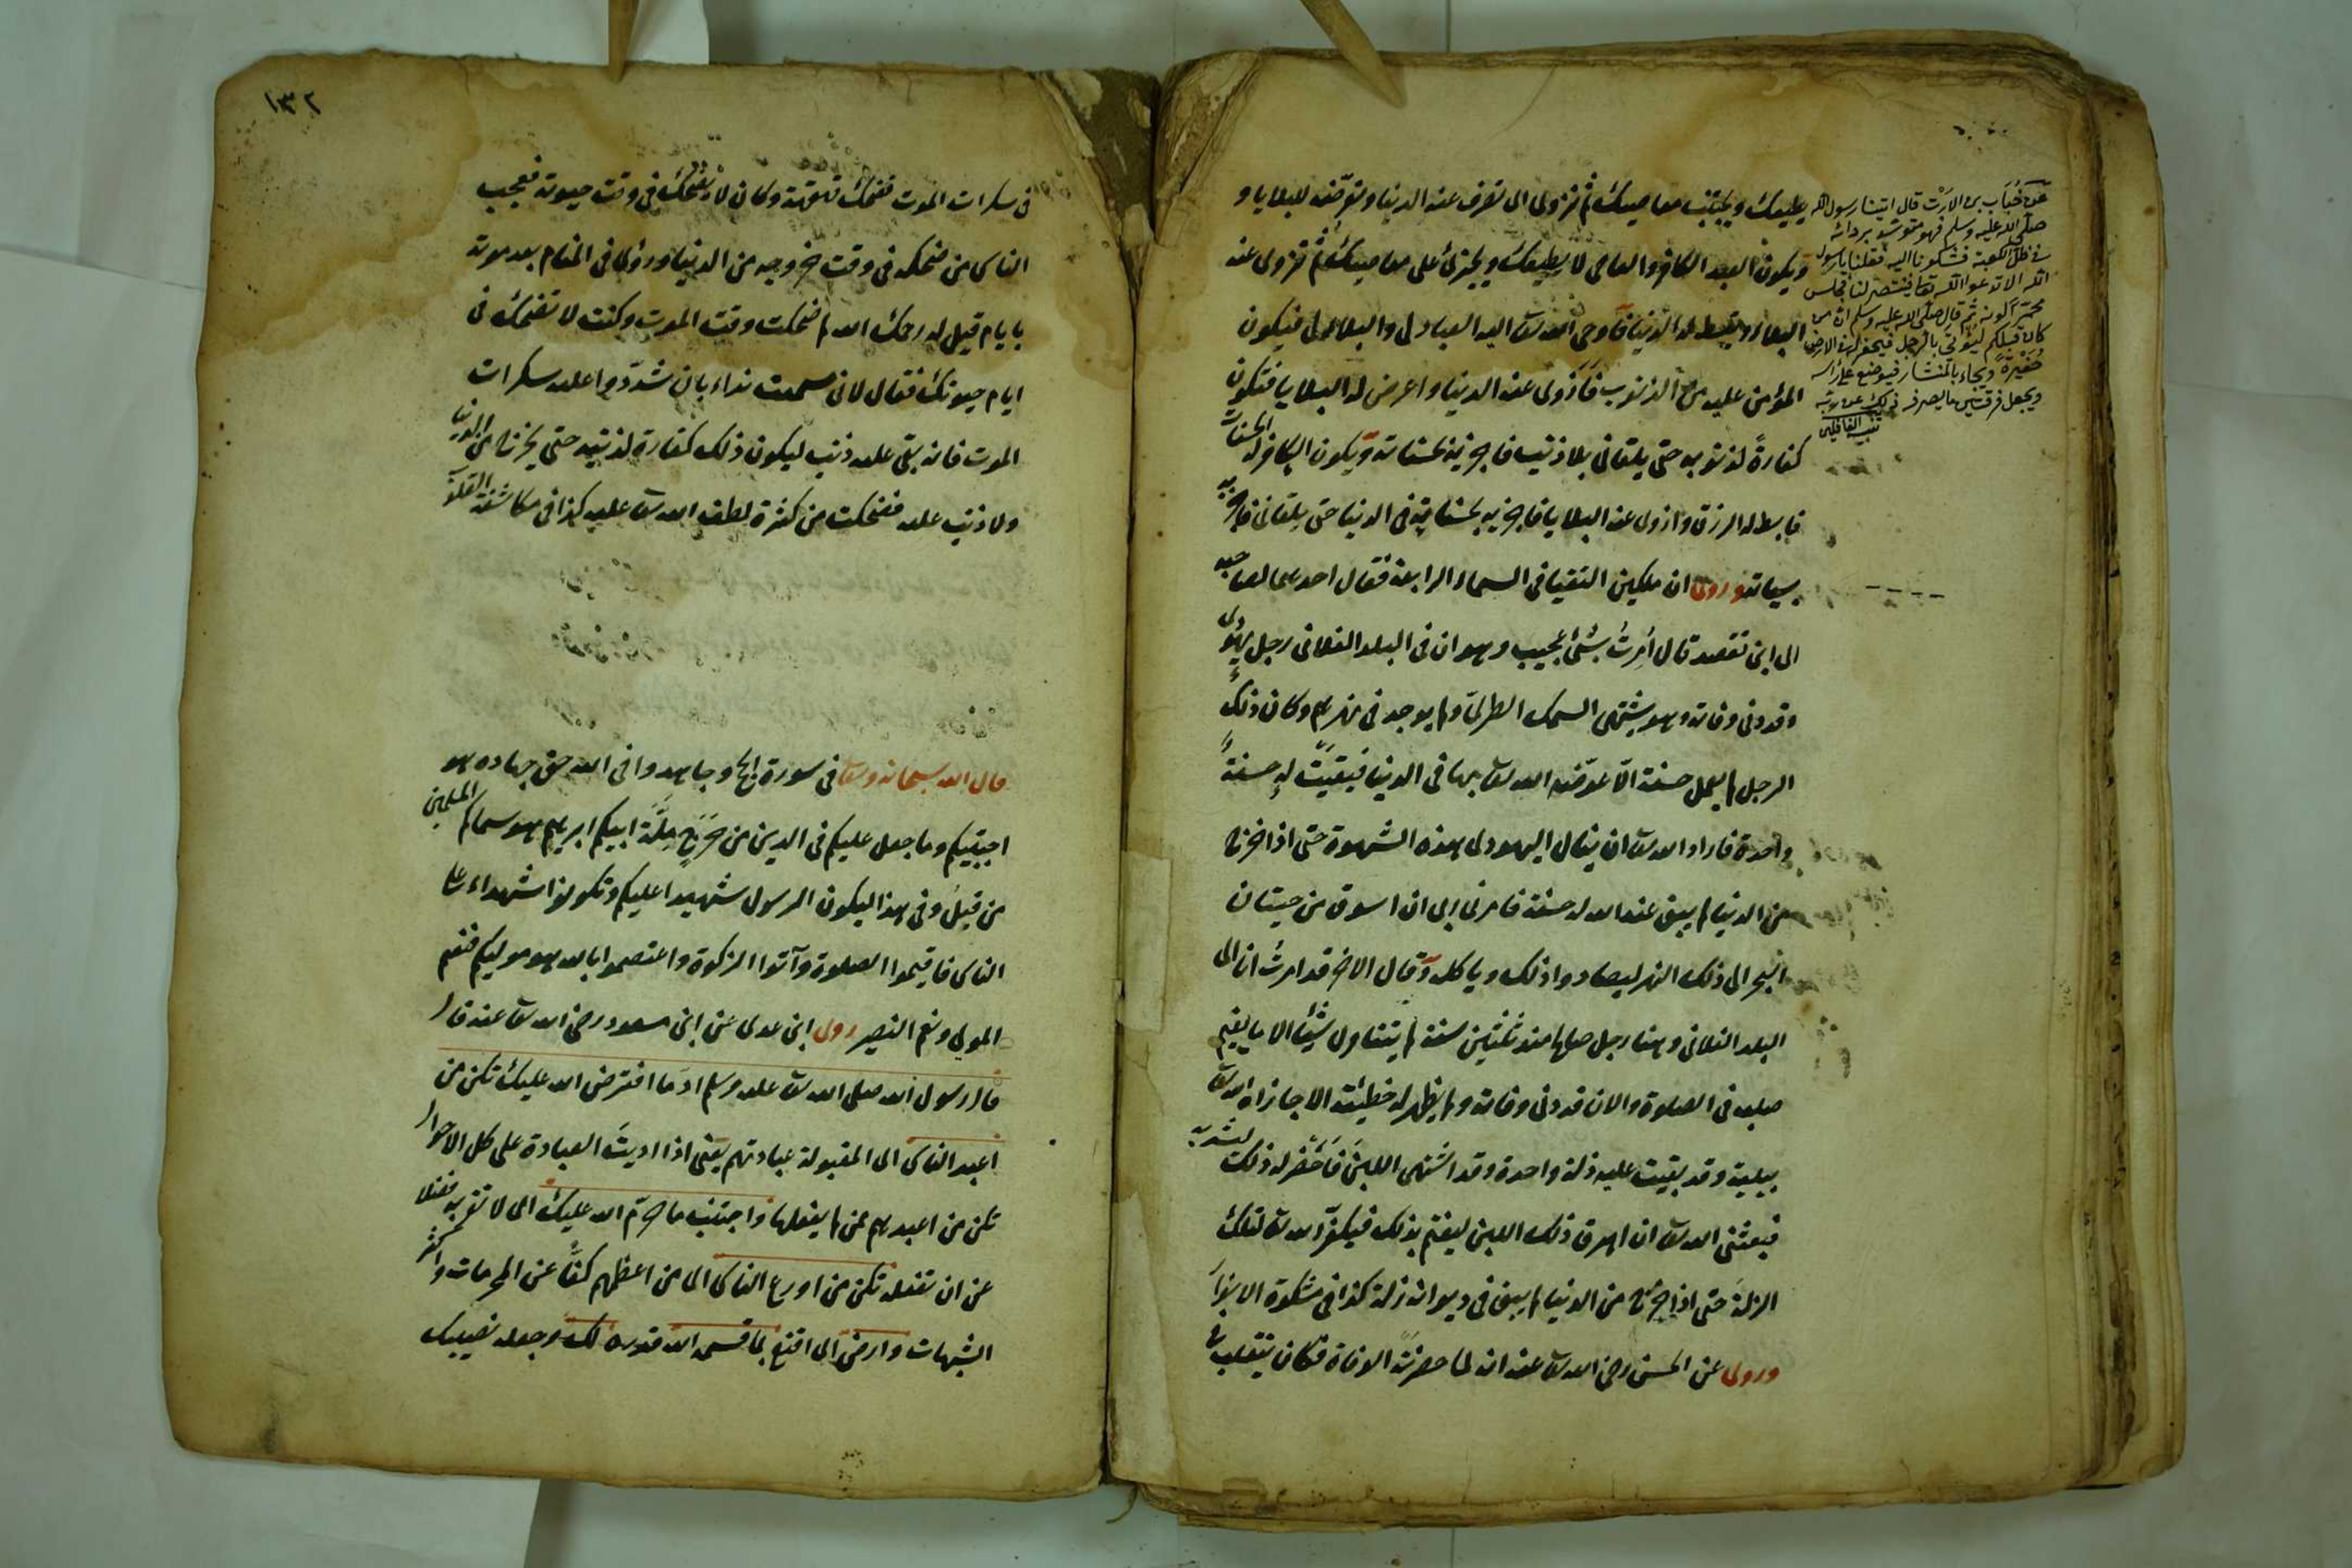 يطيعك ويجتنب معاصيك ثم تزوى الى تعرف عنه الدنيا وتعرضه للبلايا و
ويكون العبد الكافر والعاصى لا يطيعك ويجترئ على معاصيك ثم تزوى عنه
البلاء وتبسط له الدنيا فاوحى الله تعا اليه العباد لى والبلاء لى فيكون
المؤمن عليه من الذنوب فازوى عنه الدنيا واعرض له البلايا فتكون
كفارةً لذنوبه حتى يلقانى بلا ذنب فاجزيه بحسناته ويكون الكافر له الحسنات
فابسط له الرزق وازوى عنه البلايا فاجزيه بحسناته فى الدنيا حتى يلقانى فاجزيه
بسياته وروى ان ملكين التقيا فى السماء الرابعة فقال احدهما لصاحبه
الى اين تقصد قال اُمرتُ بشئ عجيب وهو ان فى البلد الفلانى رجل يهودى
وقد دنى وفاته وهو يشتهى السمك الطرىّ ولم يوجد فى نهرهم وكان ذلك
الرجل لم يعمل حسنة الّا عوّضه الله تعا بها فى الدنيا فبقيت له حسنةٌ
واحدة فاراد الله تعا ان ينال اليهودى هذه الشهوة حتى اذا خرج
من الدنيا لم يبق عند الله له حسنة فامرنى ربى ان اسوق من حيتان
البحر الى ذلك النهر ليصادوا ذلك وياكله وقال الاخر قد امرت انا الى
البلد الفلانى وهنا رجل صالح منذ ثلثين سنة لم يتناول شيئا الا ما يقيم
صلبه فى الصلوة والان قد دنى وفاته ولم يظهر له خطيئة الا جازاه الله تعا
ببلية وقد بقيت عليه زلة واحدة وقد اشتهى اللبن فاحضر له ذلك ليشربه
فبعثنى الله تعا ان اهرق ذلك اللبن ليغتم بذلك فيكفر الله تعا تلك
الزلة حتى اذا خرج من الدنيا لم يبق فى ديوانه زلة كذا فى مشكوة الانوار
وروى عن الحسن رضى الله تعا عنه انه لما حضرته الوفاة فكان يتقلب
عن خباب بن الارت قال اتينا رسول الله
صلى الله عليه وسلم فهو متوسد بردائه
فى ظل الكعبة فشكونا اليه فقلنا يا رسول
الله الا تدعوا الله تعا فيتنصر لنا فجلس
محمرا لونه ثم قال صلى الله عليه وسلم ان من
كان قبلكم ليؤتى بالرجل فيحفر له فى الارض
حفيرة ويجاء بالمنشار فيوضع على رأسه
ويجعل فرقتين ما يصرفه ذلك عن دينه
تنبيه الغافلين
١٣٢
فى سكرات الموت فضحك قهقهة وكان لا يضحك فى وقت حيوته فعجب
الناس من ضحكه فى وقت خروجه من الدنيا ورؤى فى المنام بعد موته
بايام قيل له رحمك الله لم ضحكت وقت الموت وكنت لا تضحك فى
ايام حيوتك فقال لانى سمعت نداء بان شدّدوا عليه سكرات
الموت فانه بقى عليه ذنب ليكون ذلك كفارة لذنبه حتى يخرج من الدنيا
ولا ذنب عليه فضحكت من كثرة لطف الله تعا عليه كذا فى مكاشفة القلوب
قال الله سبحانه وتعا فى سورة الحج وجاهدوا فى الله حق جهاده هو
اجتبيكم وما جعل عليكم فى الدين من حَرَجٍ مِلَّةَ ابيكم ابرهيم هو سماكم المسلمين
من قبلُ وفى هذا ليكون الرسول شهيدا عليكم وتكونوا شهداء على
الناس فاقيموا الصلوة وآتوا الزكوة واعتصموا بالله هو موليكم فنعم
المولى ونعم النصير روى ابن عدى عن ابن مسعود رضى الله تعا عنه قال
قال رسول الله صلى الله تعا عليه وسلم ادّ ما افترض الله عليك تكن من
اعبد الناس اى المقبولة عبادتهم يعنى اذا اديتَ العبادة على كل الاحوال
تكن من اعبدهم ممن لم يفعلها واجتنب ما حرّم الله عليك اى لا تقربه فضلا
عن ان تفعله تكن من اورع الناس اى من اعظمهم كفًّا عن المحرمات واكثر
الشبهات وارض اى اقنع بما قسم الله قدره لك وجعله نصيبك